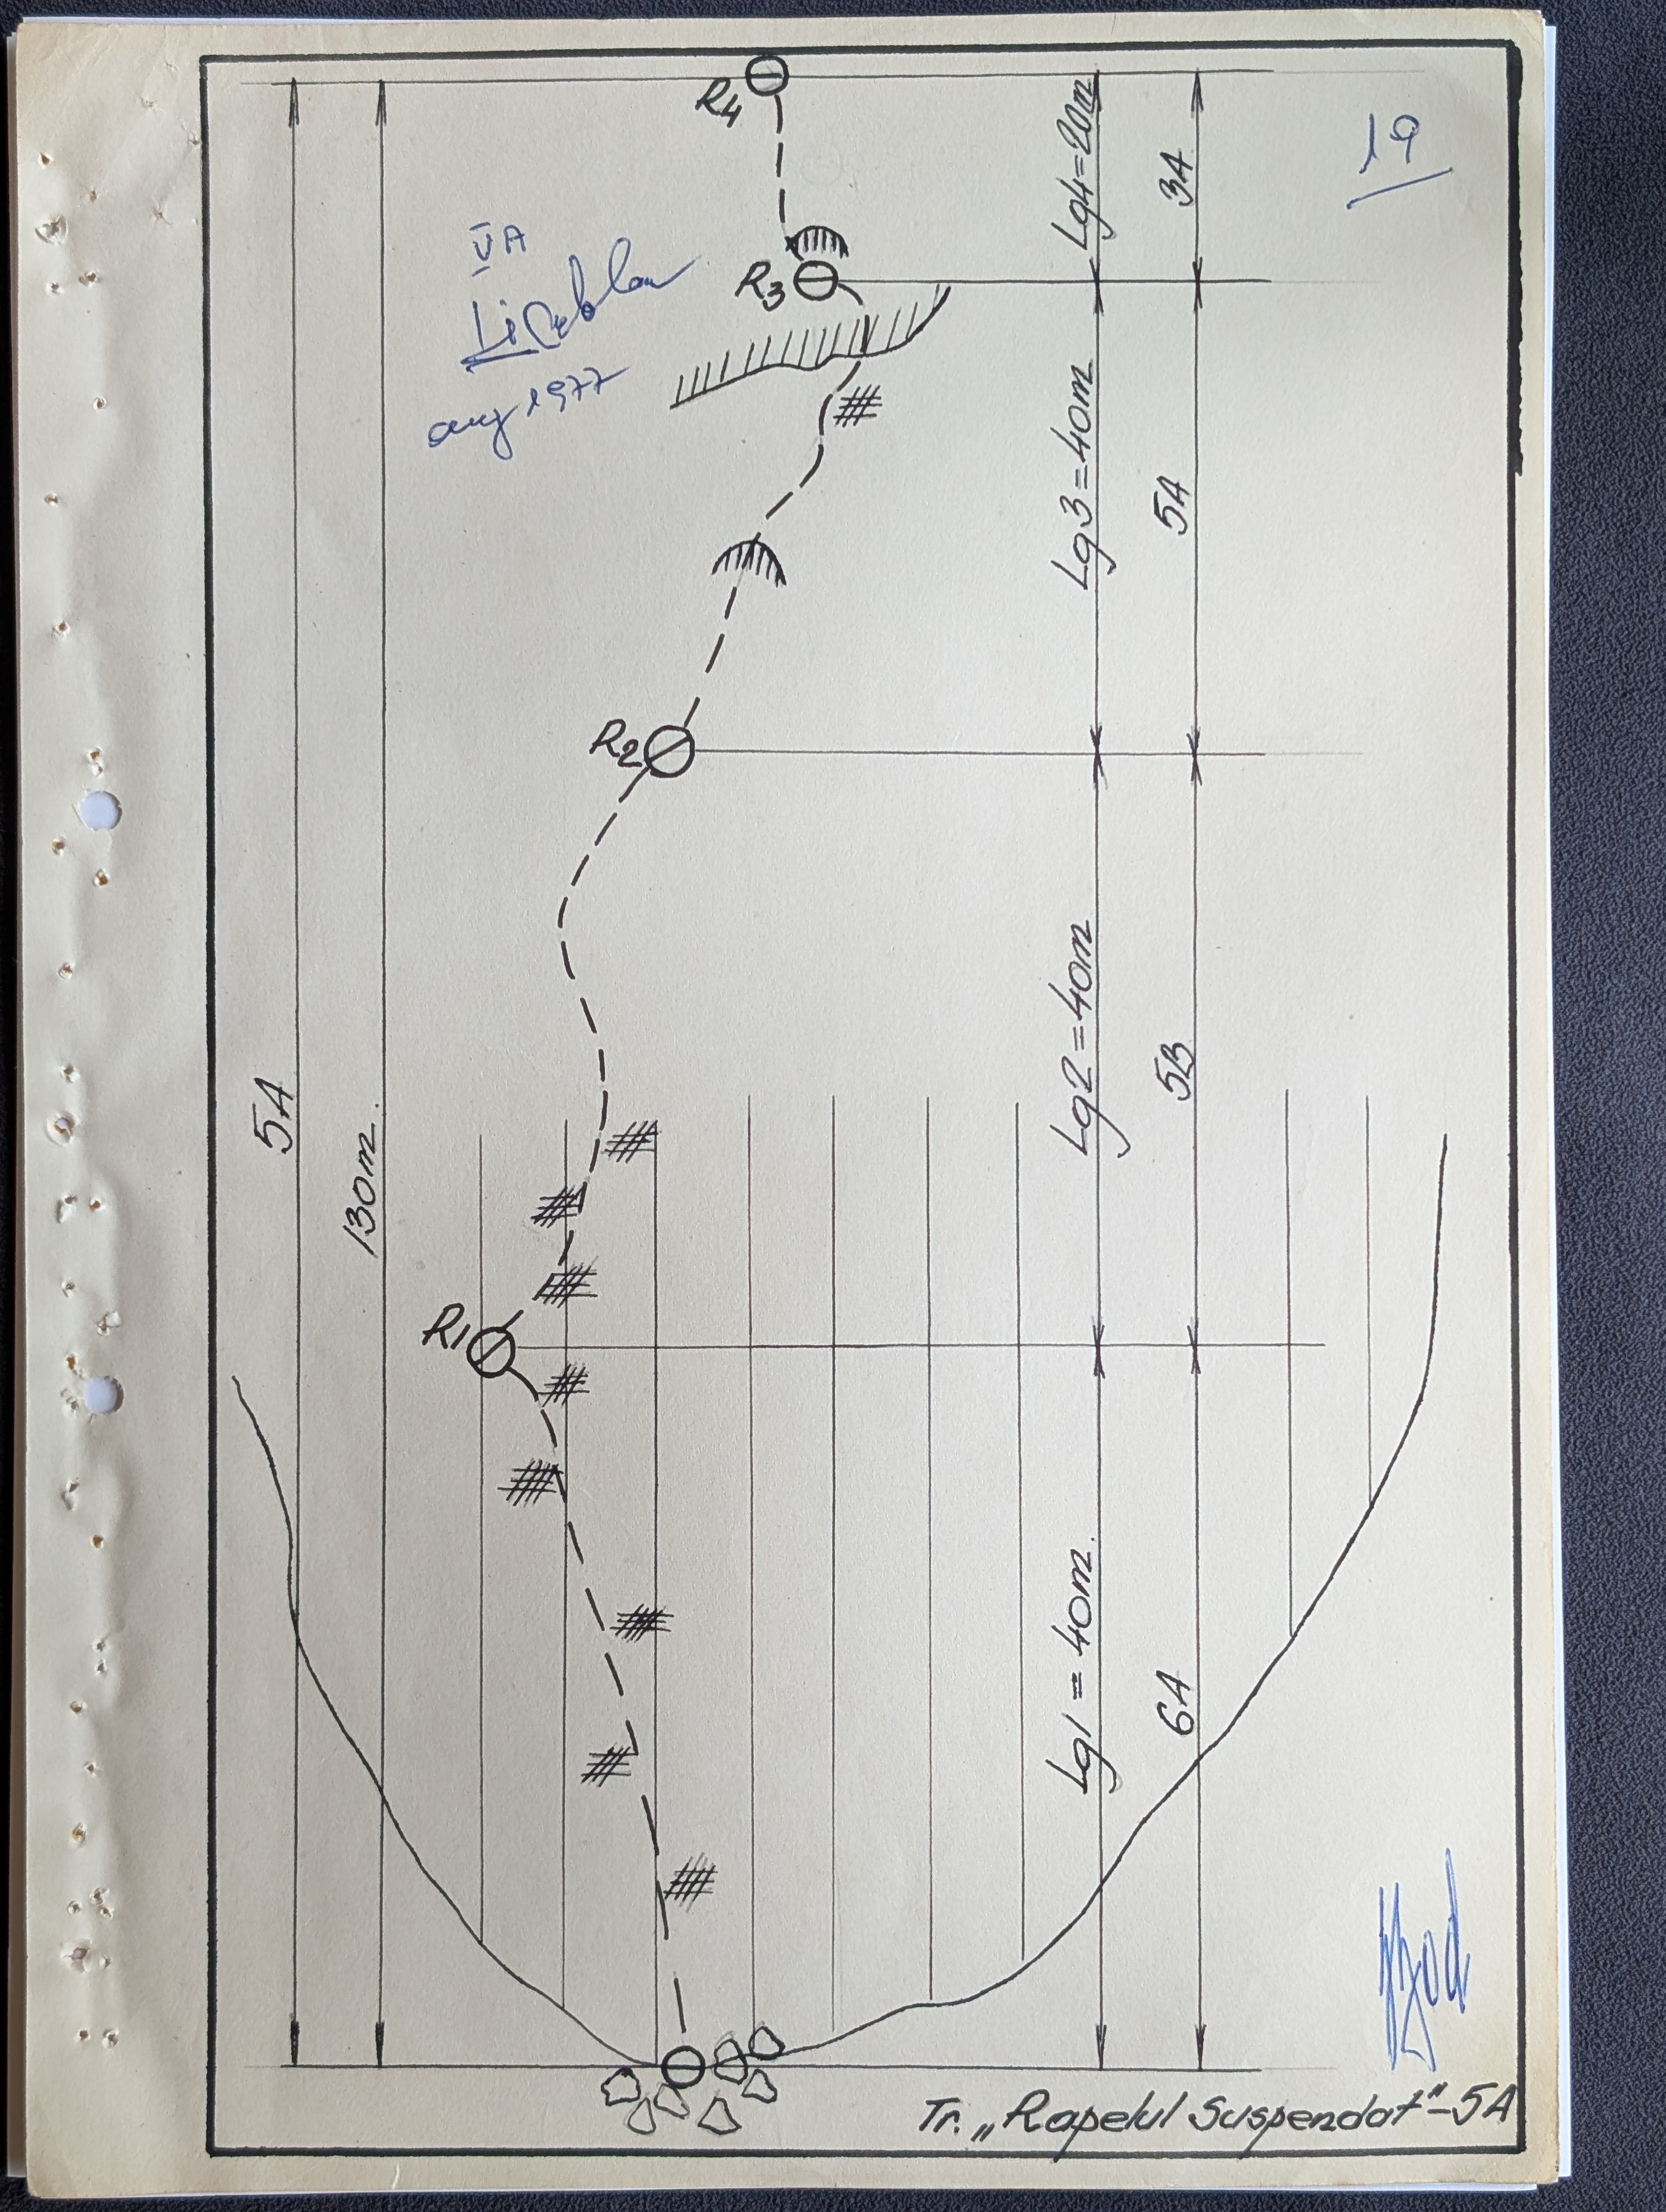 R4
Lg4=20m
3A
19
V A
R3
aug 1977
Lg3=40m
5A
R2
Lg2=40m
5B
5A
130m.
R1
Lg1=40m.
6A
Tr. „Rapelul Suspendat"-5A